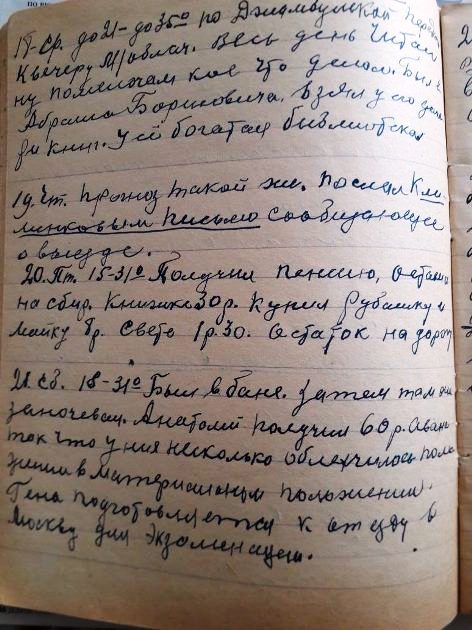 18-ср. до 21- до 35° по Джамбулской
К вечеру Облач. Весь день читал
ну помелочам кое что делал. Был у
Абрама Борисовича. Взял у его
книг. У её богатая библиотека
19. Чт. Прогноз такой же. Послал Кли
менковым письмо сообщающее
о выезде.
20. Пт. 15-31° Получил пенсию, Остави
на сбир. Книжке 30 р. Купил Рубашку и
Майку 8р. Свете 1р.30. Остаток на дорогу
21. Сб. 18-31° Был в бане. Затем там же
заночевал. Анатолий получил 60 р. Аванс
так что у них несколько облехчилось поло
жении в материальном положении.
Гена подготовляется к отезду в
Москву для Экзаменации.